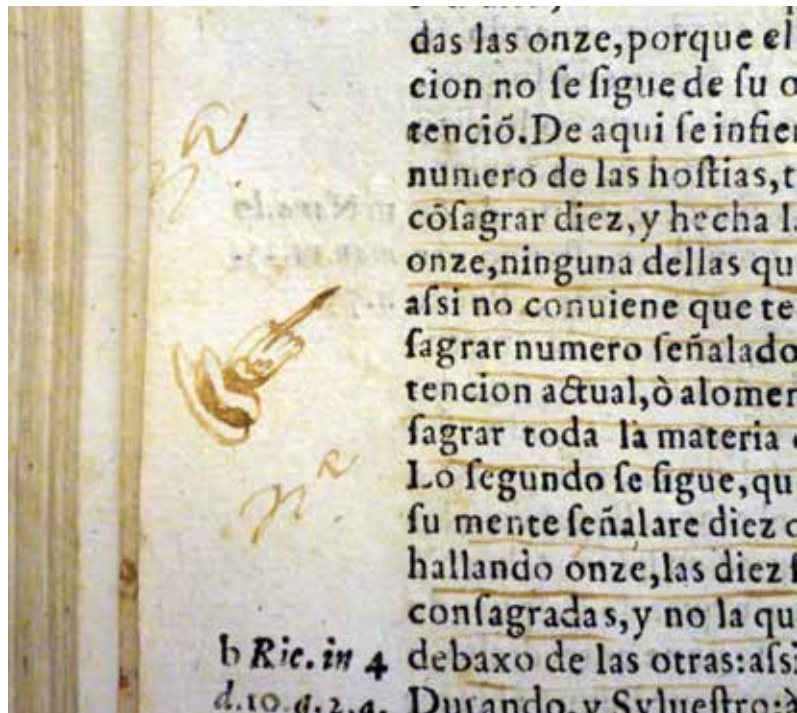 das las onze,porque el
cion no ſe ſigue de ſu o
tenciõ.De aqui ſe infier
numero de las hoſtias,t
cõſagrar diez,y hecha la
onze,ninguna dellas qu
aſsi no conuiene que te
ſagrar numero ſeñalado
tencion actual,ò alomen
ſagrar toda la materia
Lo ſegundo ſe ſigue,qu
ſu mente ſeñalare diez
hallando onze,las diez
conſagradas,y no la qu
debaxo de las otras:aſsi
Durando,y Sylueſtro:à
b Ric. in 4
d.10.a.2.q.